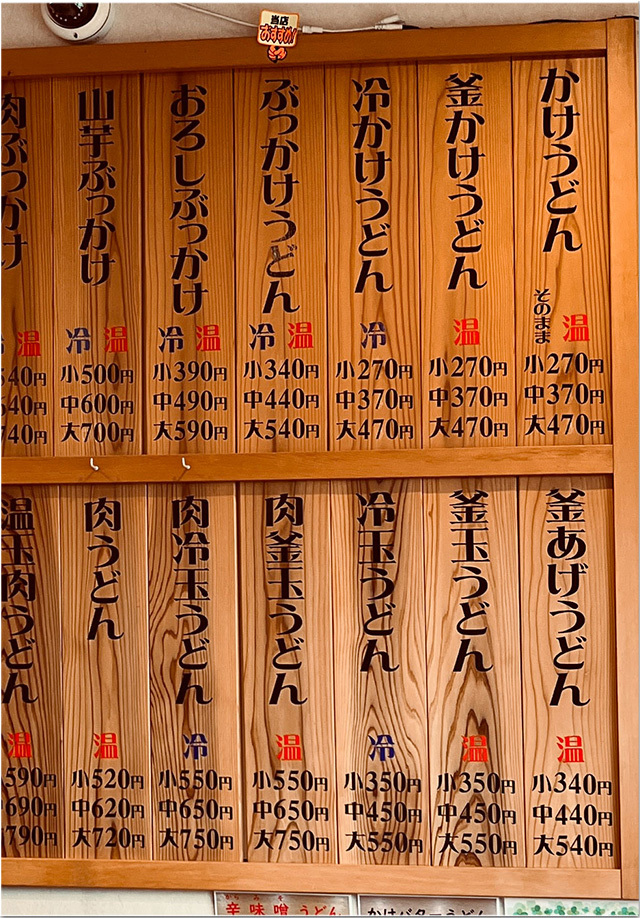 当店
おすすめ!
かけうどん
そのまま 温
小270円
中370円
大470円
釜かけうどん
温
小270円
中370円
大470円
冷かけうどん
冷
小270円
中370円
大470円
ぶっかけうどん
冷 温
小340円
中440円
大540円
おろしぶっかけ
冷 温
小390円
中490円
大590円
山芋ぶっかけ
冷 温
小500円
中600円
大700円
肉ぶっかけ
温
540円
640円
740円
釜あげうどん
温
小340円
中440円
大540円
釜玉うどん
温
小350円
中450円
大550円
冷玉うどん
冷
小350円
中450円
大550円
肉釜玉うどん
温
小550円
中650円
大750円
肉冷玉うどん
冷
小550円
中650円
大750円
肉うどん
温
小520円
中620円
大720円
温玉肉うどん
温
590円
690円
790円
辛味噌うどん
かけバターうどん